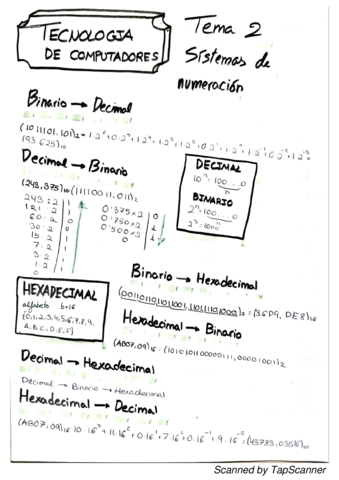 TECNOLOGIA
DE COMPUTADORES
Tema 2
Sistemas de
numeración
Binario → Decimal
(1011101.101)₂ = 1·2⁶+0·2⁵+1·2⁴+1·2³+1·2²+0·2¹+1·2⁰+1·2⁻¹+0·2⁻²+1·2⁻³
(93.625)₁₀
Decimal → Binario
(243,375)₁₀ (11110011.011)₂
243:2 | 1
121:2 | 1
60:2 | 0
30:2 | 0
15:2 | 1
7:2 | 1
3:2 | 1
1:2 | 1
0
0'375x2 | 0
0'750x2 | 1
0'500x2 | 1
0
DECIMAL
10ⁿ = 100...0
n
BINARIO
2ⁿ = 100...0
2³ = 1000
Binario → Hexadecimal
(0011011011011001,110111101000)₂ = (36D9, DE8)₁₆
HEXADECIMAL
alfabeto b=16
{0,1,2,3,4,5,6,7,8,9,
A,B,C,D,E,F}
Hexadecimal → Binario
(AB07,09)₁₆ = (1010101100000111,00001001)₂
Decimal → Hexadecimal
Decimal → Binario → Hexadecimal
Hexadecimal → Decimal
(AB07,09)₁₆ 10·16³+11·16²+0·16¹+7·16⁰+0·16⁻¹+9·16⁻²=(43783,03516)₁₀
Scanned by TapScanner